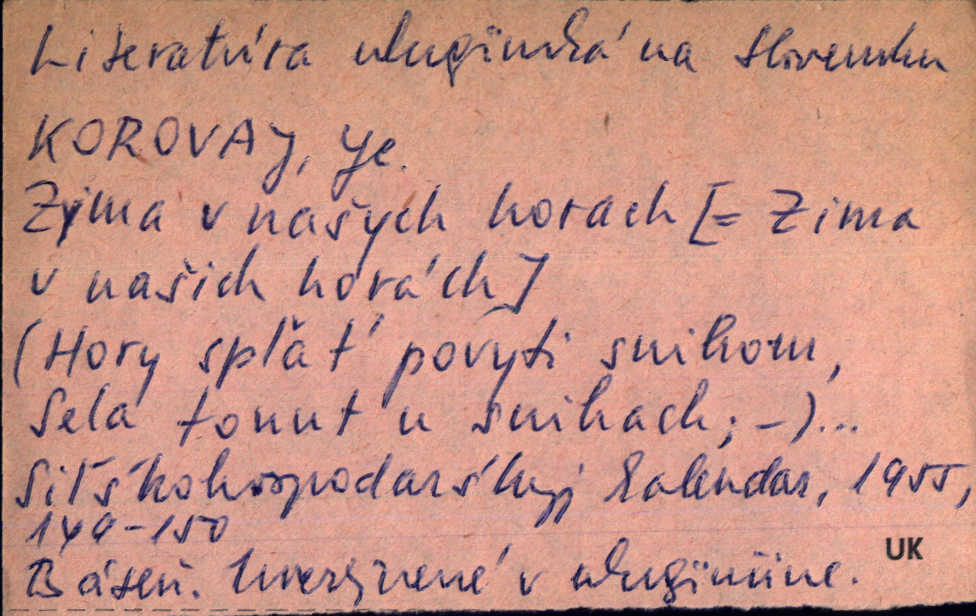 Literatúra ukrajinská na Slovensku
KOROVAJ, Je.
Zyma v našych horach [= Zima
v našich horách]
(Hory spľať povyti snihom,
Sela tonut u snihach; -)...
Siľśkohospodarśkyj kalendar, 1955,
149-150
Báseň. Uverejnené v ukrajinčine.
UK